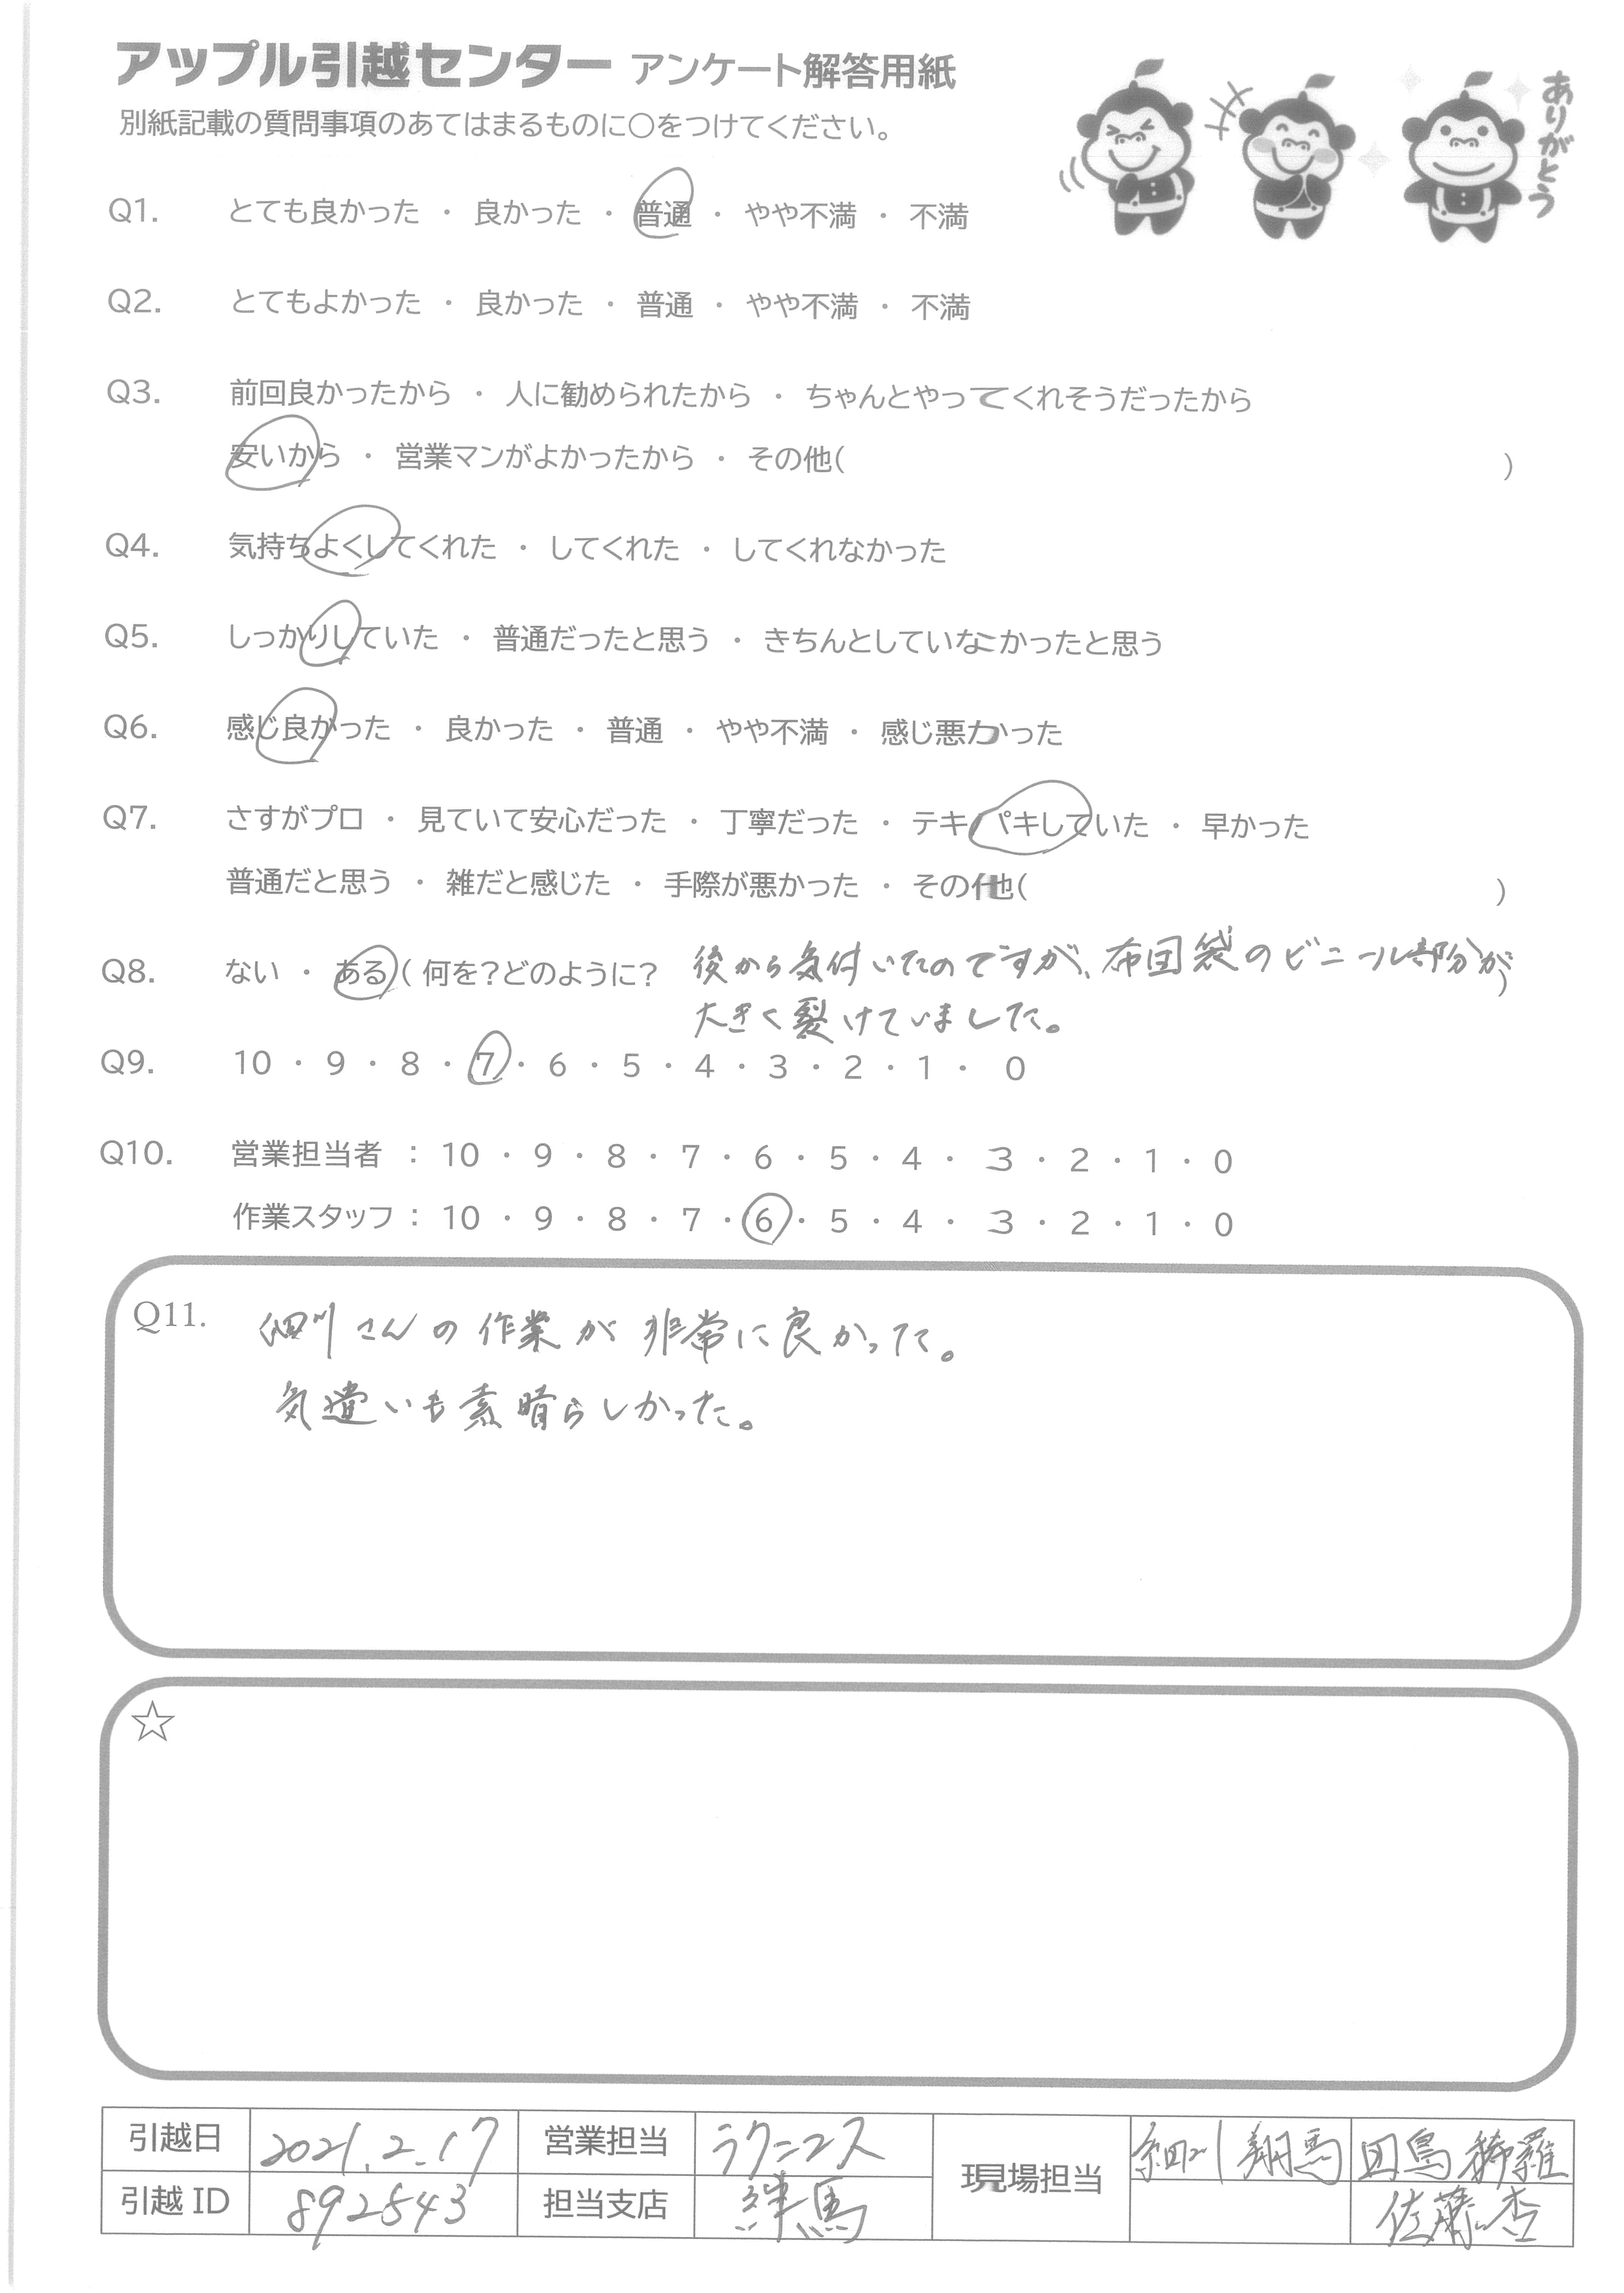 アップル引越センター アンケート解答用紙
別紙記載の質問事項のあてはまるものに○をつけてください。
ありがとう
Q1. とても良かった ・ 良かった ・ 普通 ・ やや不満 ・ 不満
Q2. とてもよかった ・ 良かった ・ 普通 ・ やや不満 ・ 不満
Q3. 前回良かったから ・ 人に勧められたから ・ ちゃんとやってくれそうだったから
安いから ・ 営業マンがよかったから ・ その他( )
Q4. 気持ちよくしてくれた ・ してくれた ・ してくれなかった
Q5. しっかりしていた ・ 普通だったと思う ・ きちんとしていなかったと思う
Q6. 感じ良かった ・ 良かった ・ 普通 ・ やや不満 ・ 感じ悪かった
Q7. さすがプロ ・ 見ていて安心だった ・ 丁寧だった ・ テキパキしていた ・ 早かった
普通だと思う ・ 雑だと感じた ・ 手際が悪かった ・ その他( )
Q8. ない ・ ある ( 何を?どのように? 後から気付いたのですが、布団袋のビニール部分が )
大きく裂けていました。
Q9. 10 ・ 9 ・ 8 ・ 7 ・ 6 ・ 5 ・ 4 ・ 3 ・ 2 ・ 1 ・ 0
Q10. 営業担当者 : 10 ・ 9 ・ 8 ・ 7 ・ 6 ・ 5 ・ 4 ・ 3 ・ 2 ・ 1 ・ 0
作業スタッフ : 10 ・ 9 ・ 8 ・ 7 ・ 6 ・ 5 ・ 4 ・ 3 ・ 2 ・ 1 ・ 0
Q11. 細川さんの作業が非常に良かった。
気遣いも素晴らしかった。
☆
引越日 2021.2.17 営業担当 ラクニコス 現場担当 細川翔馬
引越ID 892543 担当支店 練馬 佐藤杏